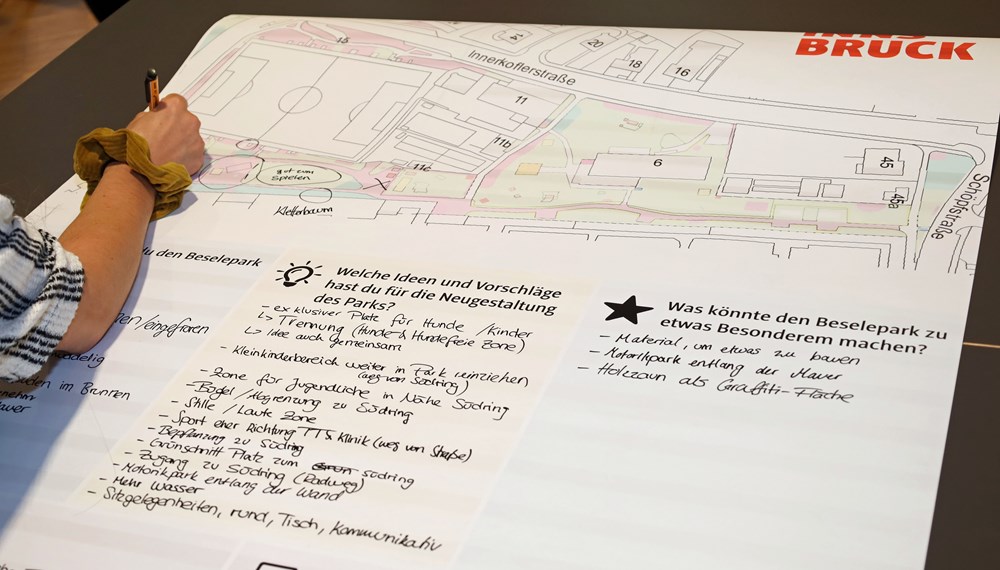 INNS
BRUCK
Innerkoflerstraße
15
14
20
18
16
11
11b
11c
6
45
45a
Schöpfstraße
gut zum
Spielen
Kletterbaum
du den Beselepark
/eingefroren
im Brunnen
Welche Ideen und Vorschläge
hast du für die Neugestaltung
des Parks?
- exklusiver Platz für Hunde / Kinder
↳ Trennung (Hunde & Hundefreie Zone)
↳ Idee auch gemeinsam
- Kleinkinderbereich weiter in Park reinziehen
(weg von Südring)
- Zone für Jugendliche in Nähe Südring
- Bügel / Abgrenzung zu Südring
- Stille / Laute Zone
- Sport eher Richtung Klinik (weg von Straße)
- Bepflanzung zu Südring
- Grünschnitt Platz zum Südring
- Zugang zu Südring (Radweg)
- Motorikpark entlang der Wand
- Mehr Wasser
- Sitzgelegenheiten, rund, Tisch, kommunikativ
Was könnte den Beselepark zu
etwas Besonderem machen?
- Material, um etwas zu bauen
- Motorikpark entlang der Mauer
- Holzzaun als Graffiti-Fläche